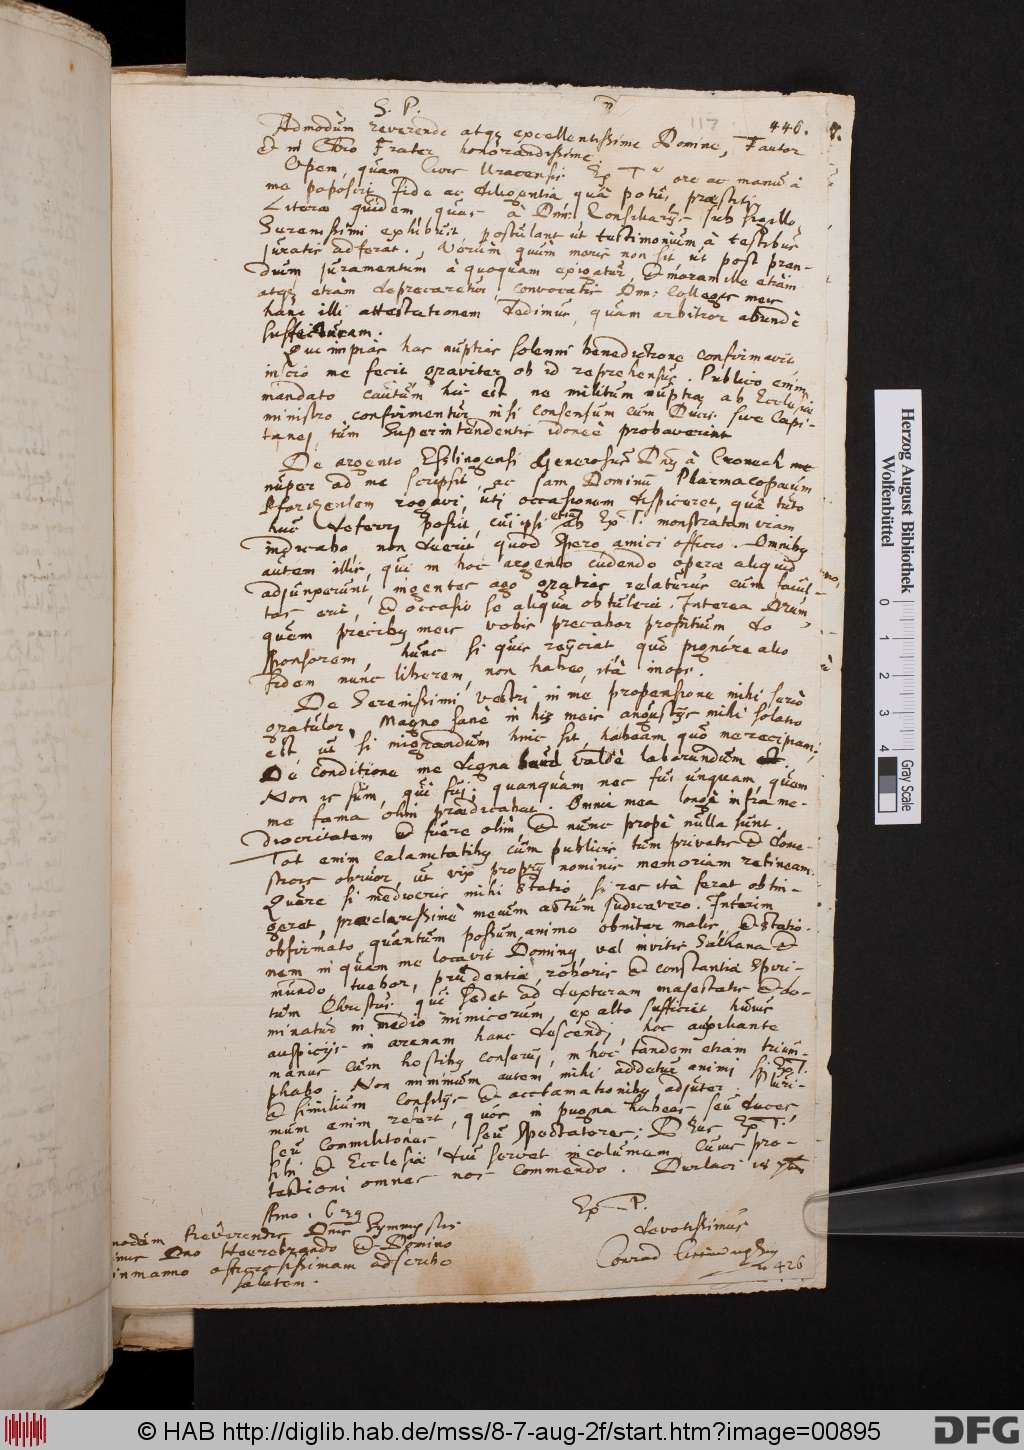 S. P.
117
446.
Admodùm reverende atq; excellentissime Domine, Fautor
& in Chro Frater honorandissime.
Opem, quam Civis Uracensis Ex T. ore ac manu à
me poposcit, fide ac diligentia, quâ potui, præstiti.
Literæ quidem quas à Dnn. Consiliarijs sub sigillo
Serenissimi exhibuit, postulant ut testimonium à testibus
juratis adferat. Verùm quùm moris non sit, ut post pran-
dium juramentum à quoquam exigatur, & moram ille etiam
atq; etiam deprecaretur, convocatis Dnn. Collegis meis
hanc illi attestationem dedimus, quam arbitror abundè
suffecturam.
Qui impias has nuptias solenni benedictione confirmavit,
inscio me fecit, graviter ob id reprehensus. Publico enim
mandato cautum hic est, ne militum nuptiæ ab Ecclesiæ
ministro confirmentur, nisi consensum cùm Ducis sive Capi-
tanej, tùm Superintendentis idoneè probaverint
De argento Eslingensi Generosus Dns à Croneck me
nuper ad me scripsit, ac jam Dominum Pharmacopæum
Pforzensem rogavi, uti occasionem dispiceret, quâ tutò
huc deferri possit, cui ipsi etiam ab Ex. T. monstratam viam
indicabo, non deerit, quod spero, amici officio. Omnibus
autem illis, qui in hoc argento cudendo operæ aliquid
adjunxerunt, ingentes ago gratias, relaturus cum facul-
tas erit, & occasio se aliqua obtulerit. Interea Deum,
quem precibus meis vobis precabor propitium do
sponsorem, hunc si quis rejiciat, quò pignore alio
fidem nunc liberem, non habeo, ità inops.
De Serenissimi vestri in me propensione mihi seriò
gratulor. Magno sane in his meis angustijs mihi solatio
est, ut, si migrandum hinc sit, habeam quò me recipiam;
De conditione me digna haud valdè laborandum est.
Non is sum, qui fui; quanquam nec fui unquam, quem
me fama olim prædicabat. Omnia mea longè infra me-
diocritatem & fuere olim, & nunc propè nulla sunt.
Tot enim calamitatibus cùm publicis tùm privatis & dome-
sticis obruor, ut vix proprij nominis memoriam retineam.
Quare si mediocris mihi statio, si res ità ferat, obtin-
geret, præclarissimè mecum actum judicavero. Interim
obfirmato, quantum possum, animo obnitar malis, & statio-
nem in quam me locavit Dominus, vel invitis Sathana &
mundo tuebor, prudentia, roboris & constantiæ Spiri-
tum Christus, qui sedet ad dexteram majestatis & do-
minatur in medio inimicorum, ex alto sufficiet, hujus
auspicijs in arenam hanc descendi, hoc auxiliante
manus cum hostibus conserui, in hoc tandem etiam trium-
phabo. Non minimum autem mihi addetur animi, si Ex. T.
& similium consilijs & acclamationibus adjuter. Pluri-
mum enim refert, quos in pugna habeas seu duces,
seu commilitones, seu spectatores; Deus Ex. T.
sibi & Ecclesiæ diù servet incolumem. Cujus pro-
tectioni omnes nos commendo. Durlaci
Anno. 1639
Ex. T.
devotissimus
Conrad
426
Reverendis Dnis Symmystis
Dno & Domino
adscribo
salutem.
Herzog August Bibliothek
Wolfenbüttel
0 1 2 3 4
Gray Scale
© HAB http://diglib.hab.de/mss/8-7-aug-2f/start.htm?image=00895
DFG